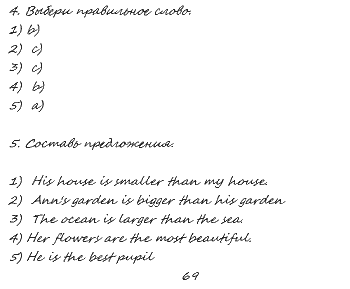 4. Выбери правильное слово.
1) b)
2) c)
3) c)
4) b)
5) a)
5. Составь предложения.
1) His house is smaller than my house.
2) Ann's garden is bigger than his garden
3) The ocean is larger than the sea.
4) Her flowers are the most beautiful.
5) He is the best pupil
69